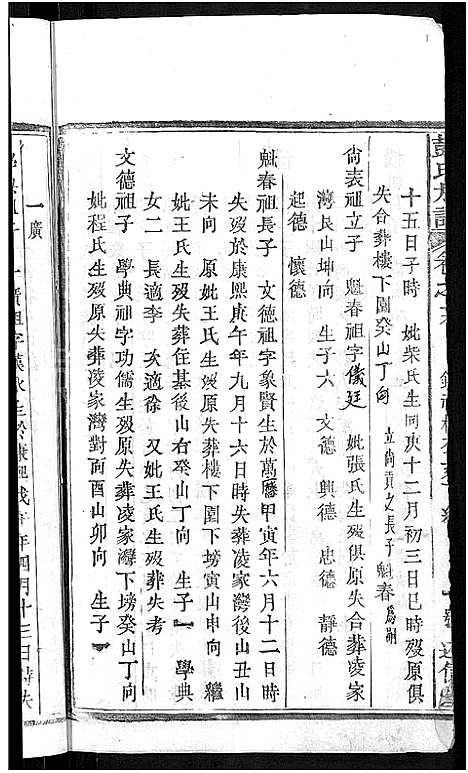 彭氏族譜
十五日子時 妣柴氏生同庚十二月初三日巳時歿原俱
失合葬樓下園癸山丁向 立尚貢之長子魁春為嗣
尚表祖立子 魁春祖字儀廷 妣張氏生歿俱原失合葬凌家
灣艮山坤向 生子六 文德 興德 忠德 靜德
起德 懷德
魁春祖長子 文德祖字象賢生於萬曆甲寅年六月十二日時
失歿於康熙庚午年九月十六日時失葬凌家灣後山丑山
未向 原妣王氏生歿原失葬樓下園下塝寅山申向 繼
妣王氏生歿失葬住基後山右癸山丁向 生子一 學典
女二 長適李 次適徐 又妣王氏生歿葬失考
文德祖子 學典祖字功儒生歿原失葬凌家灣下塝癸山丁向
妣程氏生歿原失葬凌家灣對面酉山卯向 生子一
一廣